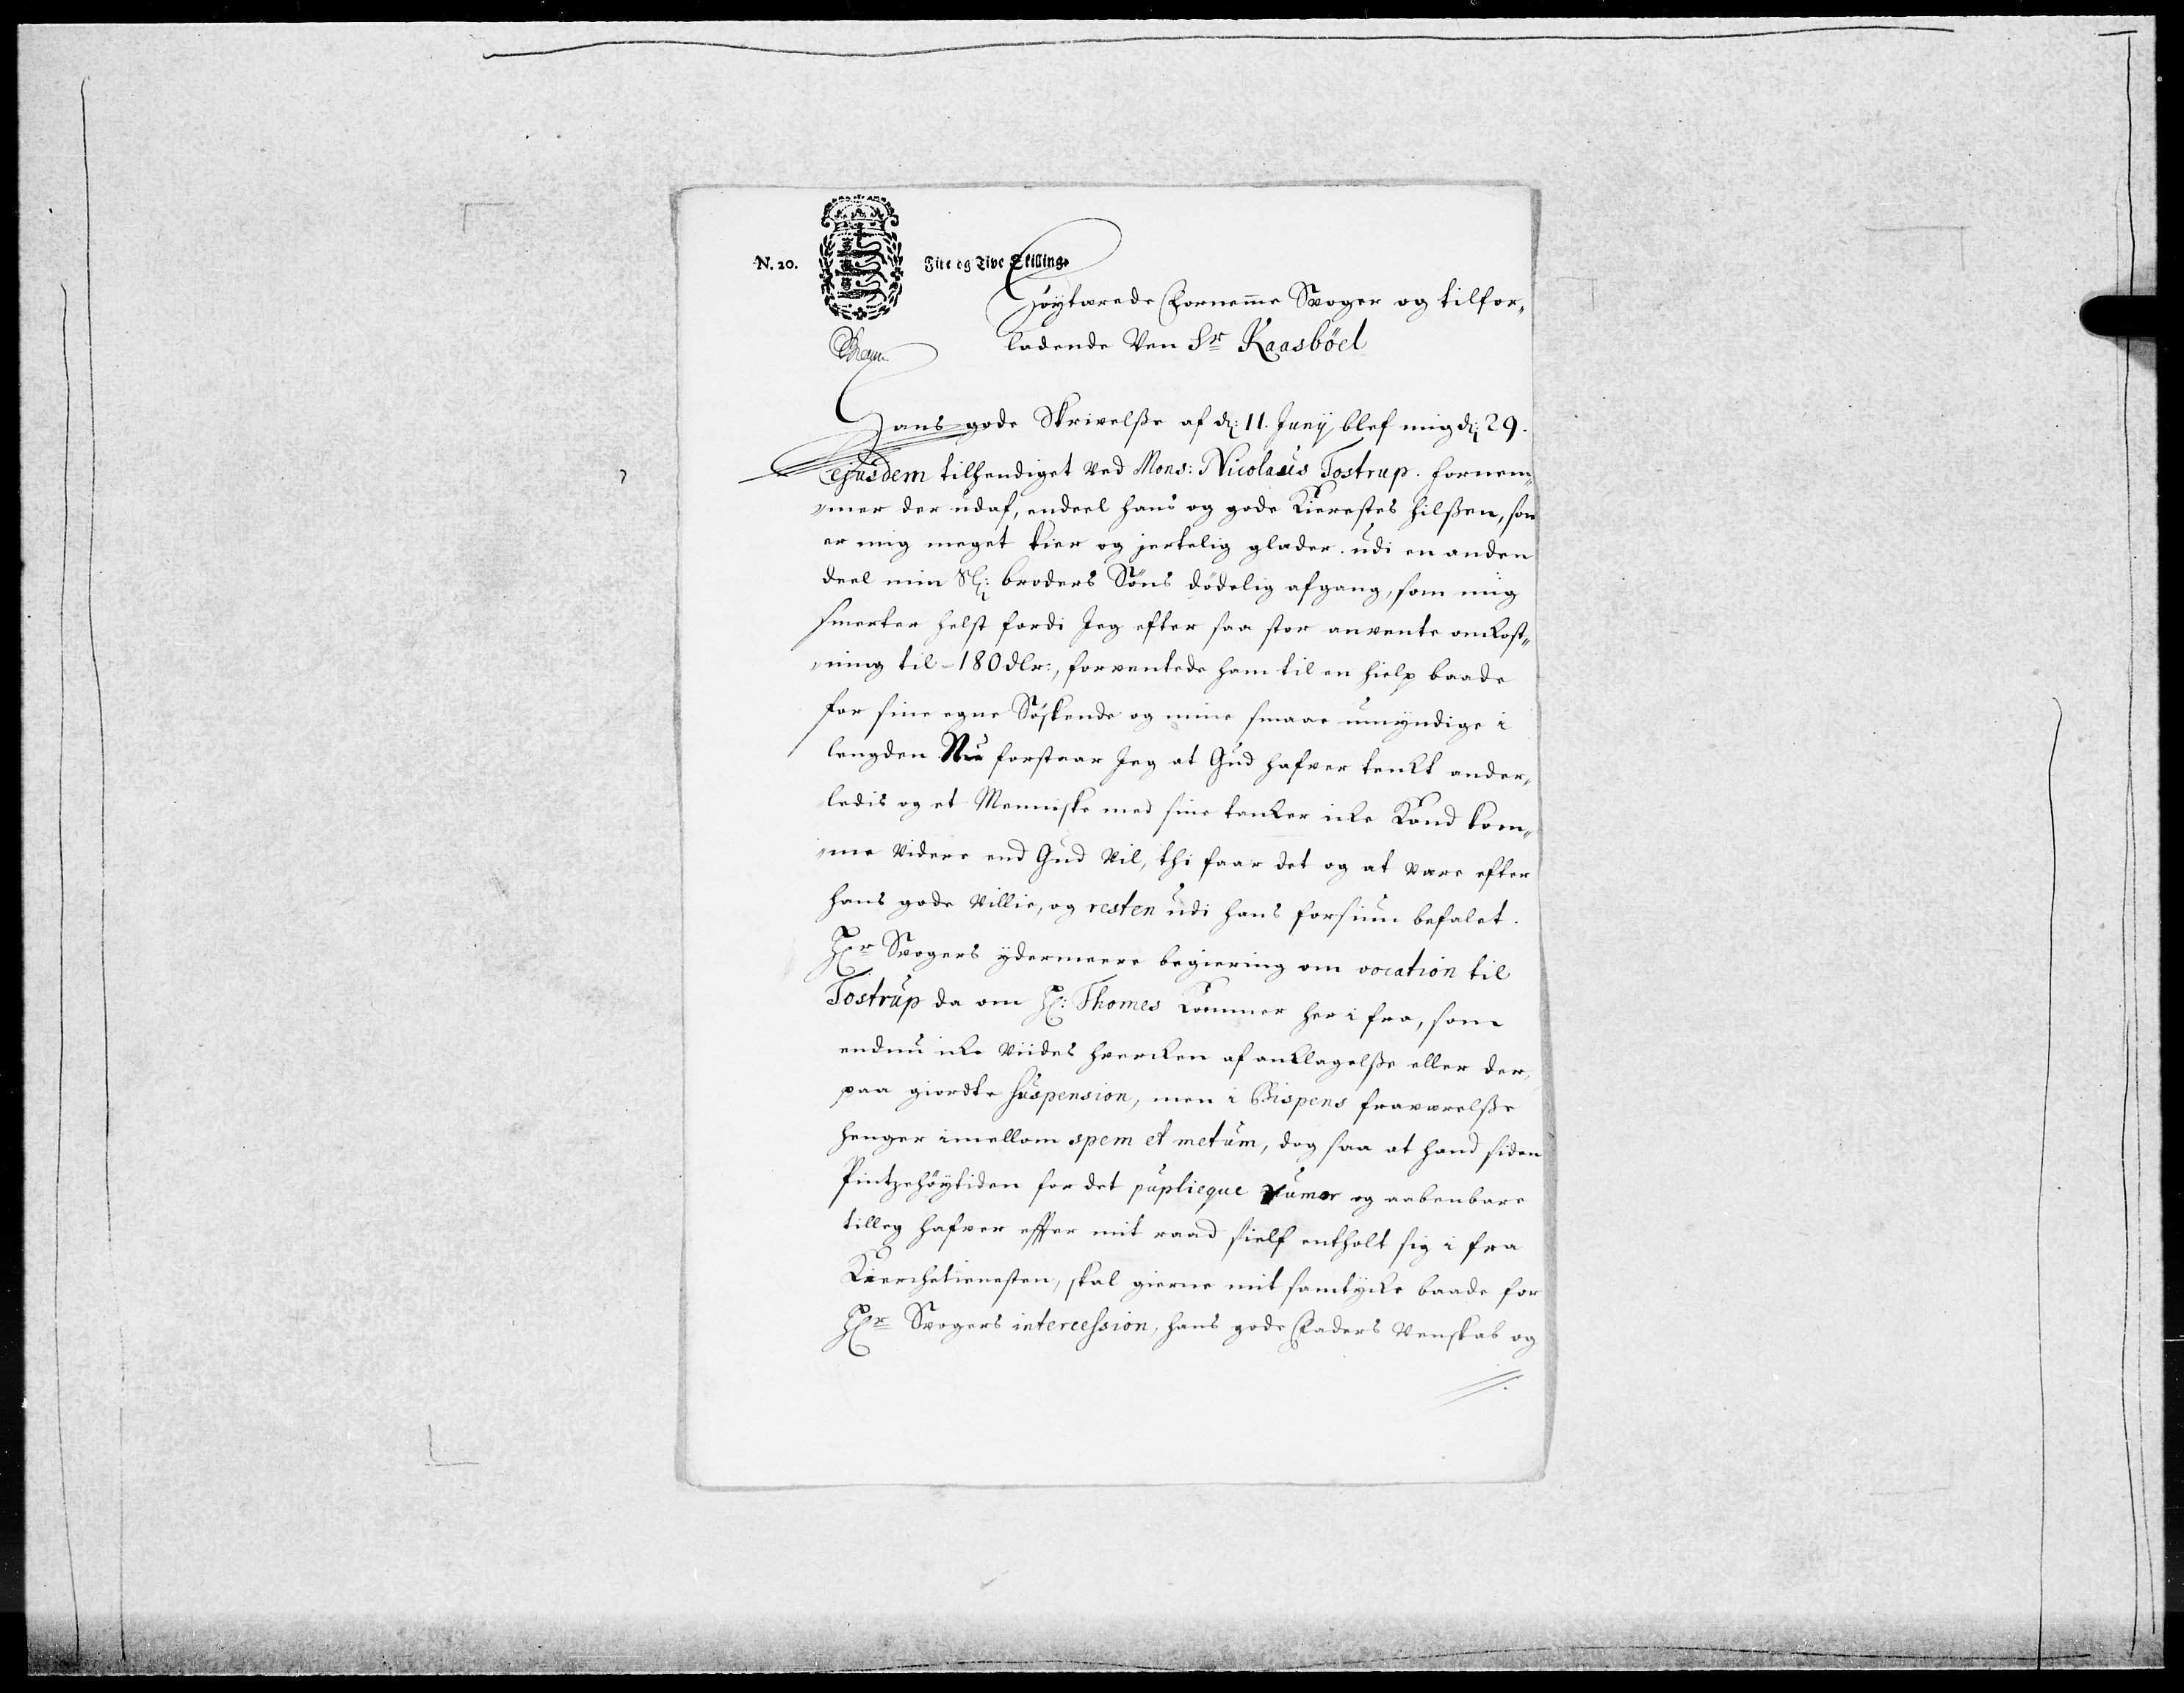 N. 20. Fire og Tive Skilling.
Höytærede Fornemme Svoger og tilfor„
ladende Ven Sr Kaasböel
Hans gode Skrivelße af d: 11. Junij blef mig d: 29.
Ejusdem tilhendiget ved Mons: Nicolaus Tostrup. fornem„
„mer der udaf, endeel hans og gode Kierestes hilßen, som
er mig meget kier og jertelig glader. udi en anden
deel min Sl: broders Söns dödelig afgang, som mig
smerter helst fordi Jeg efter saa stor anvente omkost„
„ning til - 180 dlr:, forventede ham til en hielp baade
for sine egne Söskende og mine smaae umyndige i
lengden Nu forstaar Jeg at Gud hafver tenkt ander„
ledis og et Menniske med sine tanker icke Kand kom„
„me videre end Gud vil, thi faar det og at være efter
hans gode Villie, og resten udi hans forsiun befalet.
Hr Svogers ydermeere begiering om vocation til
Tostrup da om H: Thomes kommer her i fra, som
endnu icke viides hvercken af anklagelße eller der„
paa giordte suspension, men i Bispens fraværelße
henger imellom spem et metum, dog saa at hand siden
Pintzehöytiden for det publicque rumor og aabenbare
tilleg hafver effter mit raad sielf entholt sig i fra
Kierchetienesten, skal gierne mit samtycke baade for
Hr Svogers intercession, hans gode Faders Venskab og